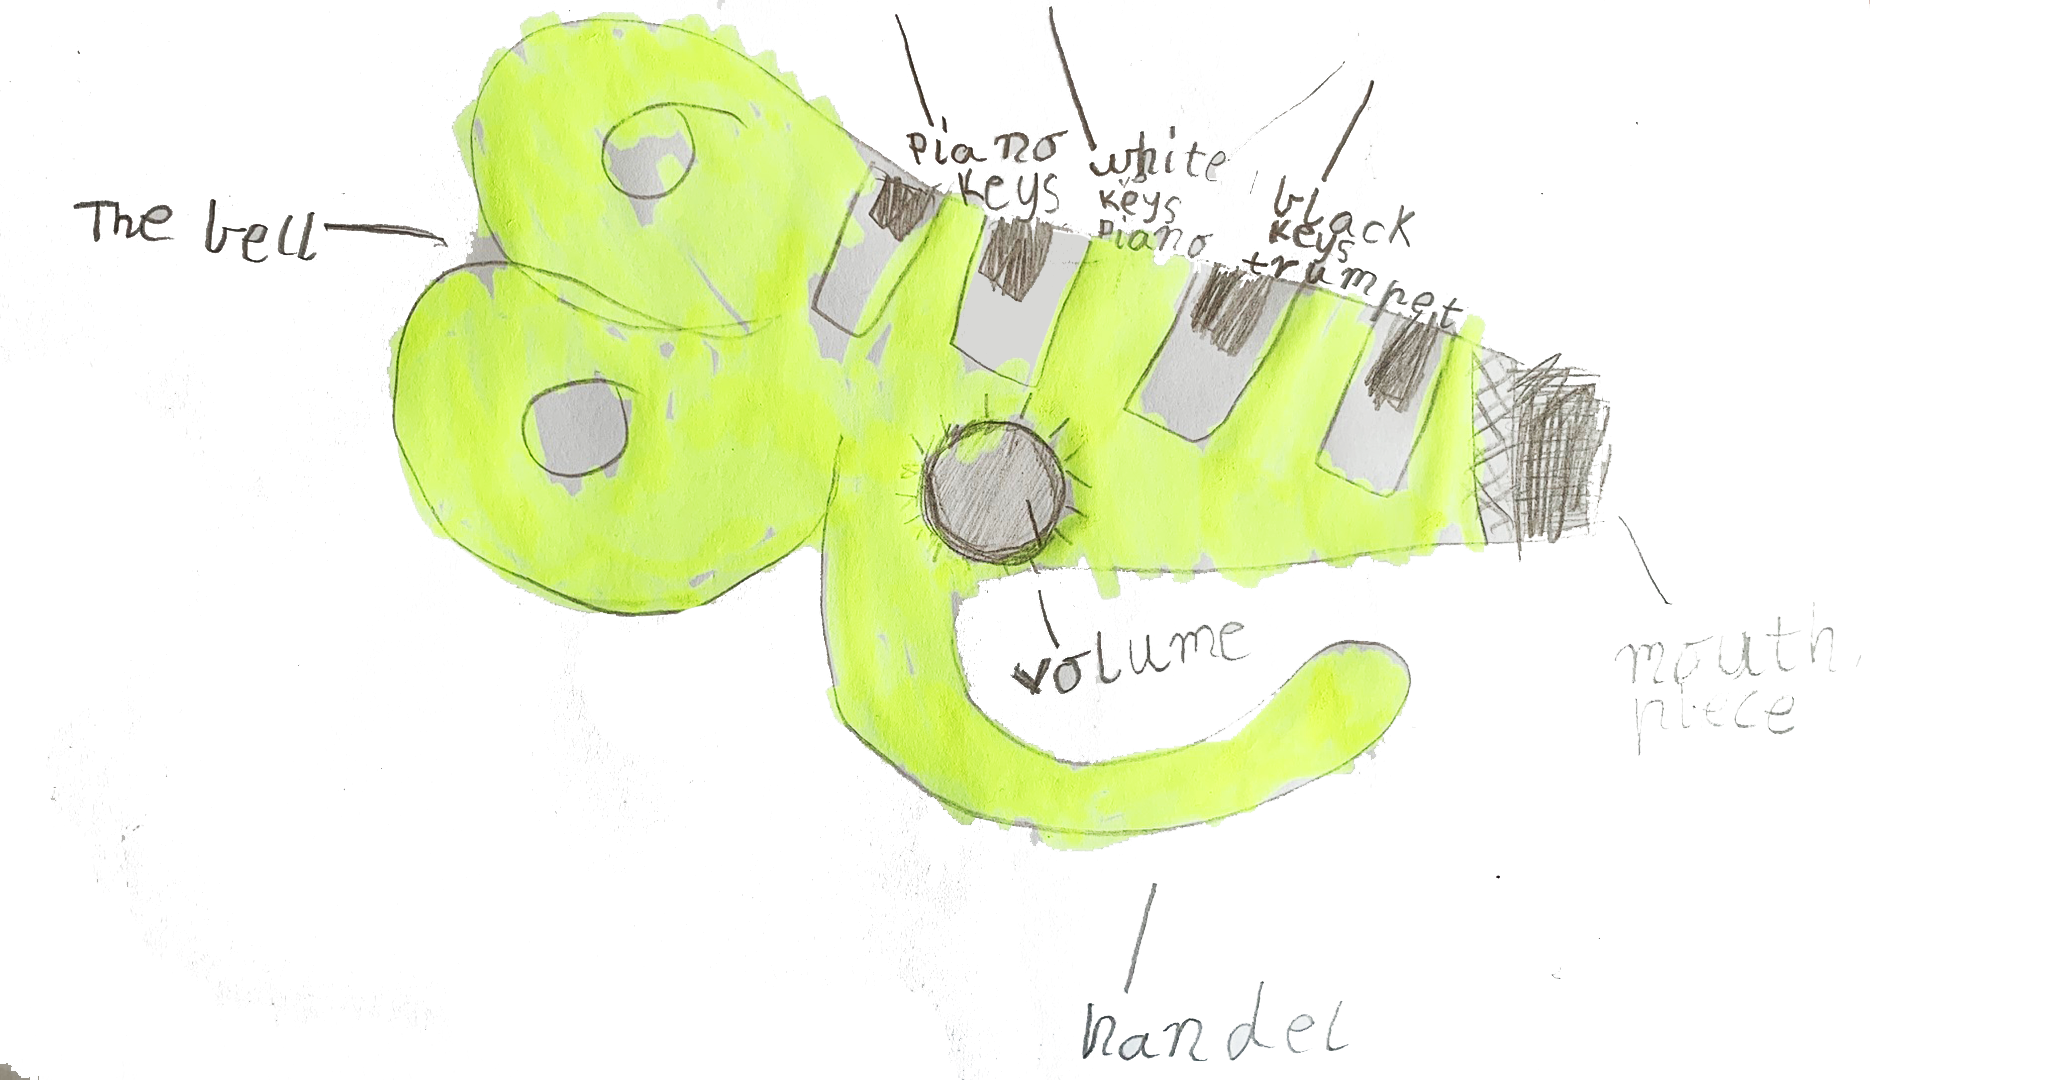 The bell
piano
keys
white
keys
piano
black
keys
trumpet
volume
mouth
piece
handel